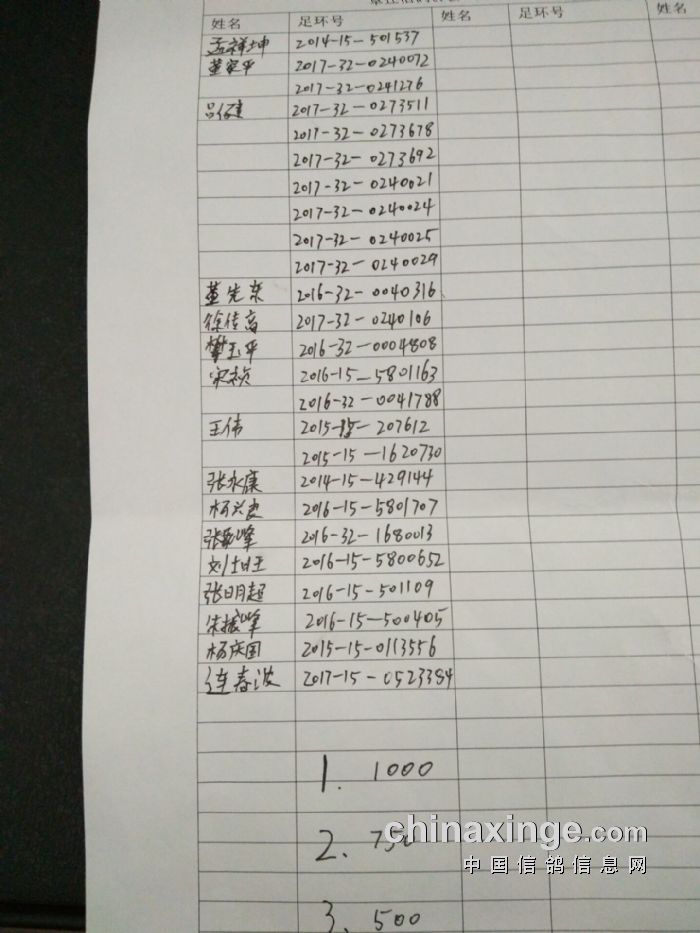 姓名 足环号 姓名 足环号 姓名
孟祥坤 2014-15-501537
董家平 2017-32-0240072
2017-32-0241276
吕任建 2017-32-0273511
2017-32-0273678
2017-32-0273692
2017-32-0240021
2017-32-0240024
2017-32-0240025
2017-32-0240029
董先东 2016-32-0040316
徐传高 2017-32-0240106
樊玉平 2016-32-0004808
宋祯 2016-15-5801163
2016-32-0041788
王伟 2015-15-207612
2015-15-1620730
张永康 2014-15-429144
杨兴良 2016-15-5801707
2016-32-1680013
2016-15-5800652
张明超 2016-15-501109
朱振峰 2016-15-500405
杨庆国 2015-15-0113556
连春波 2017-15-0523384
1. 1000
chinaxinge.com
2. 750
中国信鸽信息网
3. 500